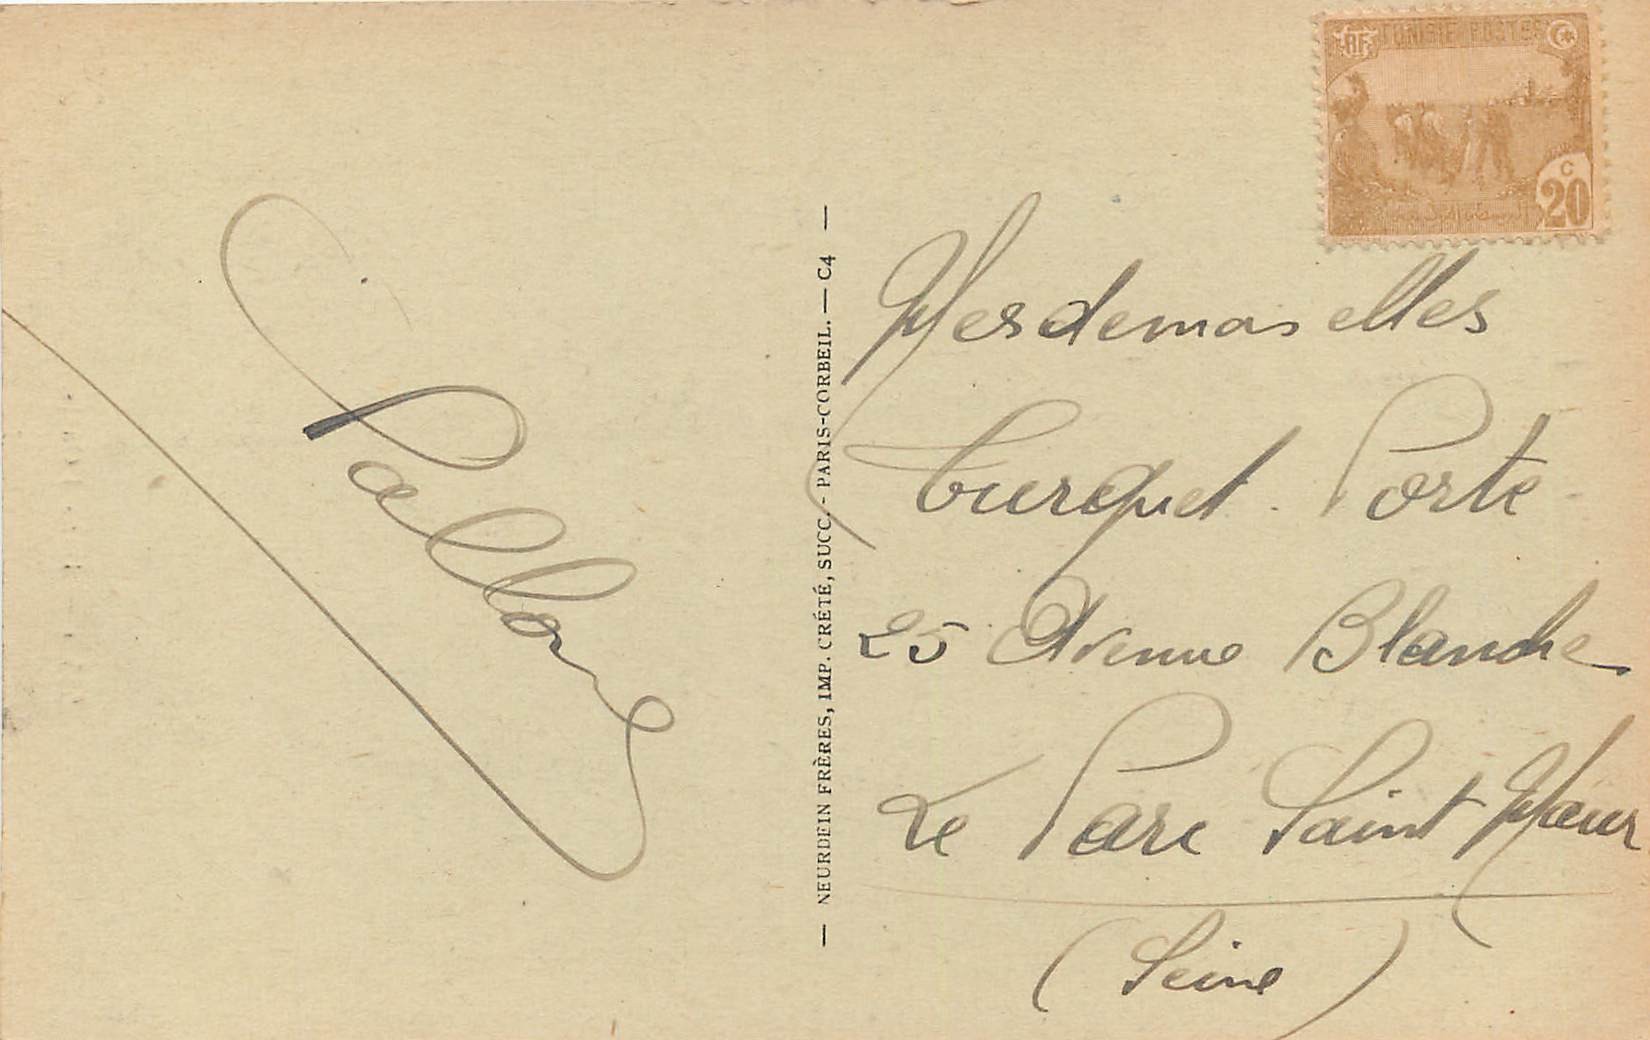 RF TUNISIE POSTES
C
20
Mesdemoiselles
Turquet. Porte
25 Avenue Blanche
Le Parc Saint-Maur
(Seine)
— NEURDEIN FRÈRES, IMP. CRÉTÉ, SUCC. - PARIS-CORBEIL. — C4 —